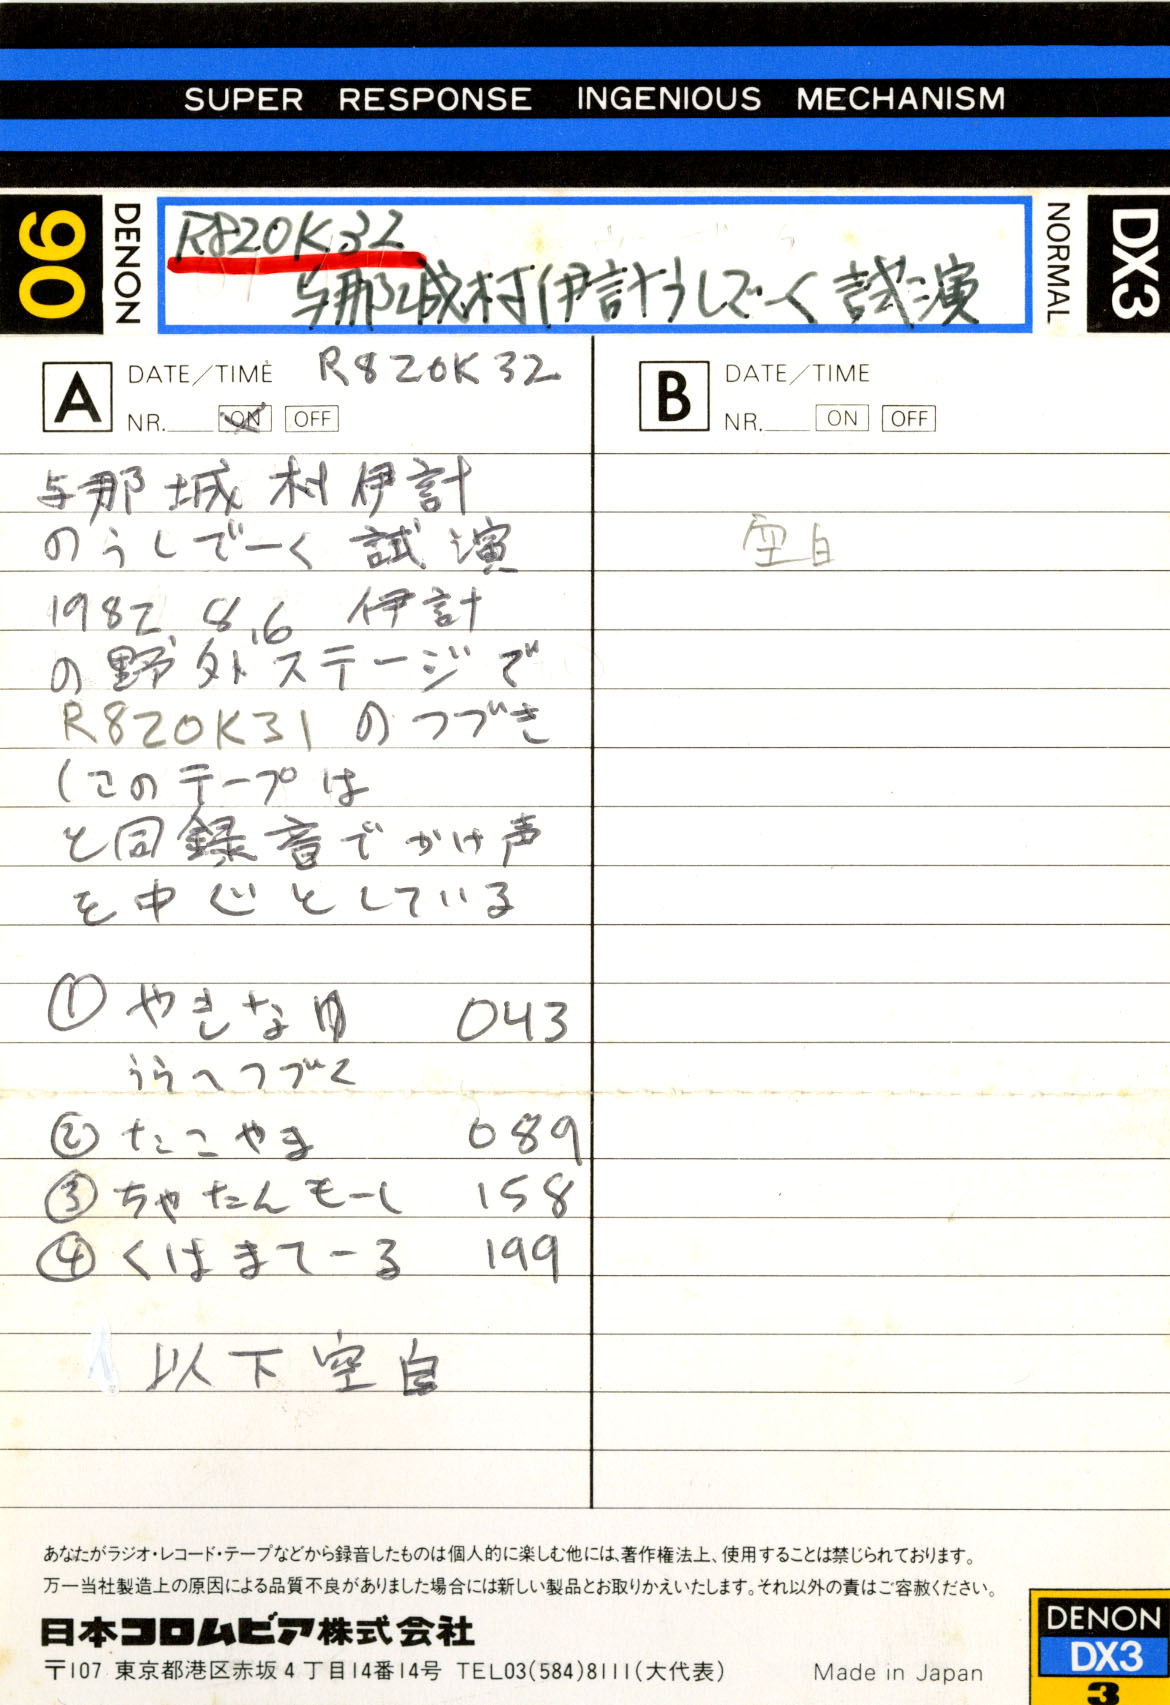 SUPER RESPONSE INGENIOUS MECHANISM
90
DENON
R820K32
与那城村伊計うしでーく試演
NORMAL
DX3
A
DATE/TIME R820K32
NR. ON OFF
与那城村伊計
のうしでーく 試演
1982 8.6 伊計
の野外ステージで
R820K31 のつづき
(このテープは
と同録音でかけ声
を中心としている
① やきなゆ 043
うらへつづく
② たこやま 089
③ ちゃたんもーし 158
④ くはまてーる 199
以下空白
B
DATE/TIME
NR. ON OFF
空白
あなたがラジオ・レコード・テープなどから録音したものは個人的に楽しむ他には、著作権法上、使用することは禁じられております。
万一当社製造上の原因による品質不良がありました場合には新しい製品とお取りかえいたします。それ以外の責はご容赦ください。
日本コロムビア株式会社
〒107 東京都港区赤坂4丁目14番14号 TEL03(584)8111(大代表)
Made in Japan
DENON
DX3
3